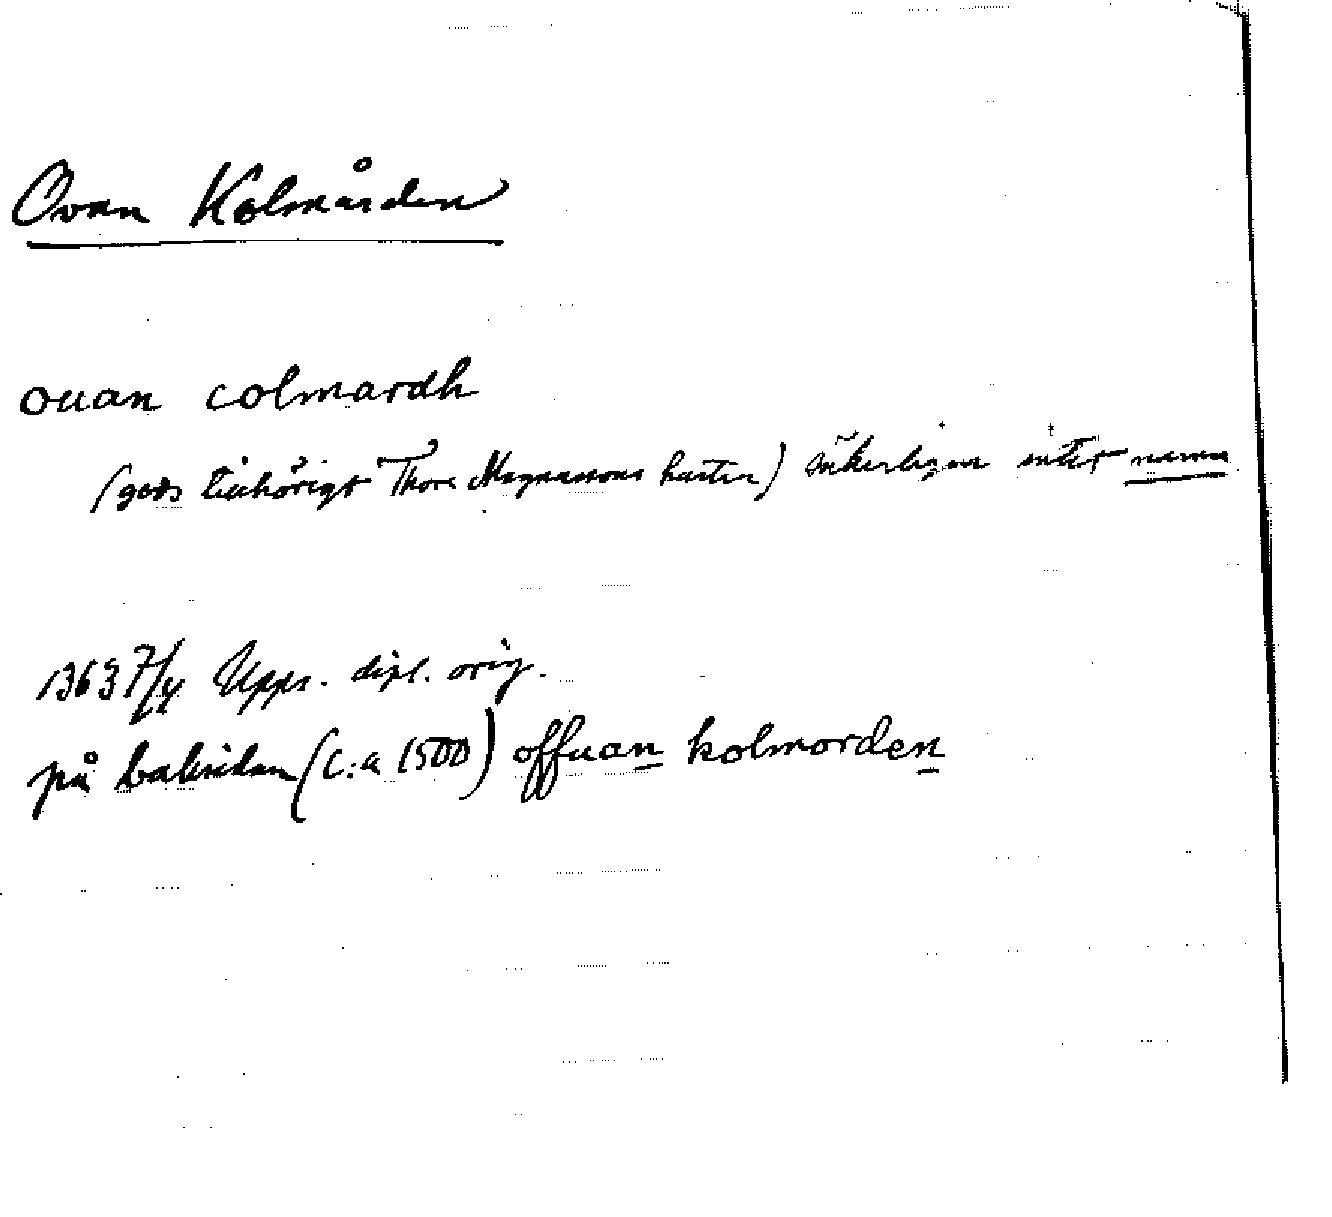 Ovan Kolmården
ouan colmardh
(gods tillhörigt Thore Magnussons hustru) säkerligen intet namn
1363 7/4 Upps. dipl. orig.
på baksidan (c:a 1500) offuan kolmorden